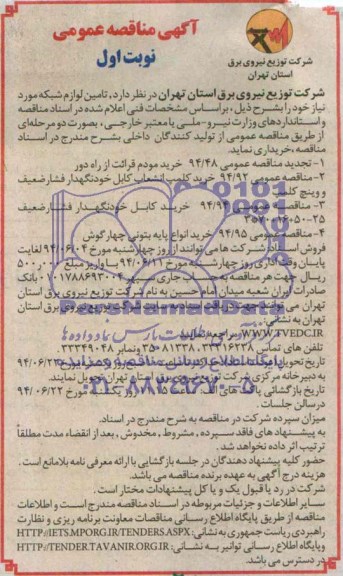 آگهی مناقصه عمومی
نوبت اول
شرکت توزیع نیروی برق
استان تهران
شرکت توزیع نیروی برق استان تهران در نظر دارد، تامین لوازم شبکه مورد
نیاز خود را بشرح ذیل ، براساس مشخصات فنی اعلام شده در اسناد مناقصه
و استانداردهای وزارت نیرو-ملی یا معتبر خارجی ، بصورت دو مرحله‌ای
از طریق مناقصه عمومی از تولید کنندگان داخلی بشرح مندرج در اسناد
مناقصه ،خریداری نماید.
۱- تجدید مناقصه عمومی ۹۴/۴۸ خرید مودم قرائت از راه دور
۲-مناقصه عمومی ۹۴/۹۲ خرید کلمپ انشعاب کابل خودنگهدار فشارضعیف
و وینچ کلمپ
۳- مناقصه عمومی ۹۴/۹۴ خرید کابل خودنگهدار فشارضعیف
۴-مناقصه عمومی ۹۴/۹۵ خرید انواع پایه بتونی چهارگوش
فروش اسناد: شرکت ها می توانند از روز چهارشنبه مورخ ۹۴/۰۶/۰۴ لغایت
پایان وقت اداری روز چهارشنبه مورخ ۹۴/۰۶/۱۱ با واریز مبلغ ۵۰۰,۰۰۰
ریال جهت هر مناقصه به حساب جاری سپهر ۰۱۰۱۷۸۸۶۹۳۰۰۴ بانک
صادرات ایران شعبه میدان امام حسین به نام شرکت توزیع نیروی برق استان
تهران می توانند جهت شرکت توزیع نیروی برق استان
تهران به نشانی
WWW.TVEDC.IR مراجعه نمایند.
تلفن های تماس ۳۳۳۱۶۲۳۸ و نمابر ۳۳۳۴۹۰۴۸
تاریخ تحویل ۹۴/۰۶/۲۲
به دبیرخانه مرکزی شرکت توزیع نیروی برق استان تهران تحویل نمایند.
تاریخ بازگشائی پاکت های مورخ ۹۴/۰۶/۲۲
در سالن جلسات .
میزان سپرده شرکت در مناقصه به شرح مندرج در اسناد.
به پیشنهاد های فاقد سپرده ، مشروط ، مخدوش ، بعد از انقضاء مدت مطلقاً
ترتیب اثر داده نخواهد شد .
حضور کلیه پیشنهاد دهندگان در جلسه بازگشایی با ارائه معرفی نامه بلامانع است .
هزینه درج آگهی به عهده برنده مناقصه می باشد.
شرکت در رد یا قبول یک و یا کل پیشنهادات مختار است .
سایر اطلاعات و جزئیات مربوطه در اسناد مناقصه مندرج است و اطلاعات
مناقصه از طریق پایگاه اطلاع رسانی مناقصات معاونت برنامه ریزی و نظارت
راهبردی ریاست جمهوری به نشانی: HTTP://IETS.MPORG.IR/TENDERS.ASPX
و پایگاه اطلاع رسانی توانیر به نشانی: HTTP://TENDER.TAVANIR.ORG.IR
در دسترس می باشد.
ParsNamadData
پایگاه اطلاع رسانی مناقصه و مزایده
۰۲۱-۸۸۳۴۹۶۷۰-۵